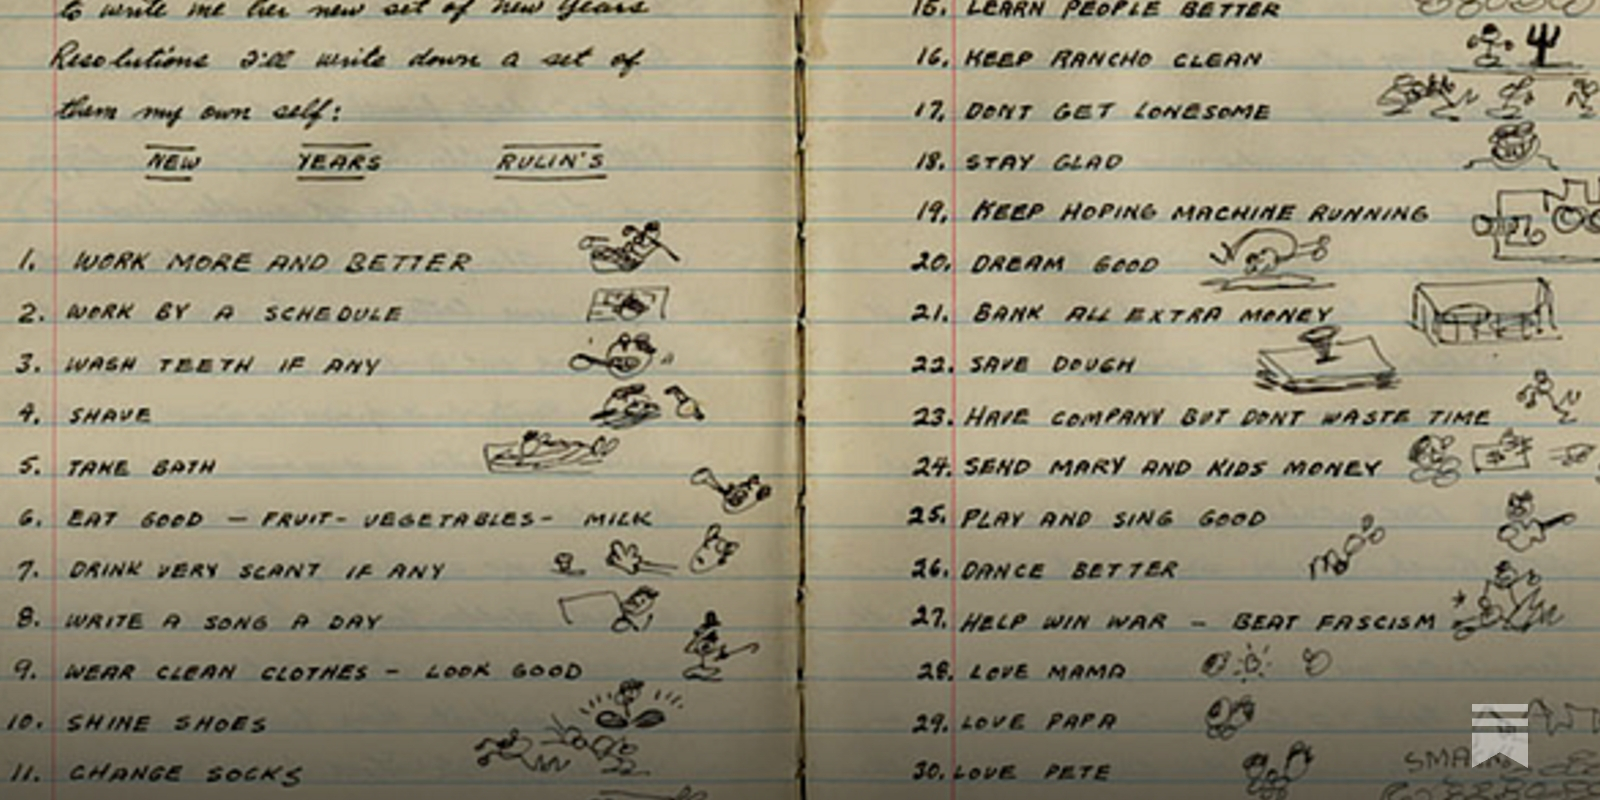 to write me her new set of New Years
Resolutions I'll write down a set of
them my own self:
NEW YEARS RULIN'S
1. WORK MORE AND BETTER
2. WORK BY A SCHEDULE
3. WASH TEETH IF ANY
4. SHAVE
5. TAKE BATH
6. EAT GOOD — FRUIT - VEGETABLES - MILK
7. DRINK VERY SCANT IF ANY
8. WRITE A SONG A DAY
9. WEAR CLEAN CLOTHES — LOOK GOOD
10. SHINE SHOES
11. CHANGE SOCKS
15. LEARN PEOPLE BETTER
16. KEEP RANCHO CLEAN
17. DONT GET LONESOME
18. STAY GLAD
19. KEEP HOPING MACHINE RUNNING
20. DREAM GOOD
21. BANK ALL EXTRA MONEY
22. SAVE DOUGH
23. HAVE COMPANY BUT DONT WASTE TIME
24. SEND MARY AND KIDS MONEY
25. PLAY AND SING GOOD
26. DANCE BETTER
27. HELP WIN WAR — BEAT FASCISM
28. LOVE MAMA
29. LOVE PAPA
30. LOVE PETE